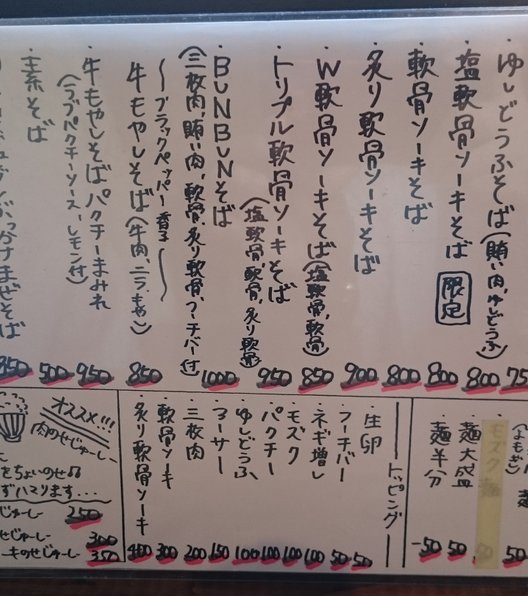 ゆしどうふそば(賄い肉、ゆしどうふ) 75
塩軟骨ソーキそば 限定 800
軟骨ソーキそば 800
炙り軟骨ソーキそば 900
W軟骨ソーキそば(塩軟骨、軟骨) 850
トリプル軟骨ソーキそば 950
(塩軟骨、軟骨、炙り軟骨)
BUNBUNそば 1000
(三枚肉、賄い肉、軟骨、炙り軟骨、フーチバー付)
〜ブラックペッパー香る〜
牛もやしそば(牛肉、ニラ、もやし) 850
牛もやしそばパクチーまみれ 950
(ラブパクチーソース、レモン付)
素そば 500
ぶっかけまぜそば 850
(よもぎ) 麺 50
モズク麺 50
麺大盛 50
麺半分 -50
トッピング
生卵 50
フーチバー 50
ネギ増し 100
モズク 100
パクチー 100
ゆしどうふ 100
アーサー 150
三枚肉 200
軟骨ソーキ 300
炙り軟骨ソーキ 400
オススメ!!!
肉のせじゅーしー
をちょいのせ♫
ずハマります...
じゅーしー 250
せじゅーしー 300
ーキのせじゅーしー 350